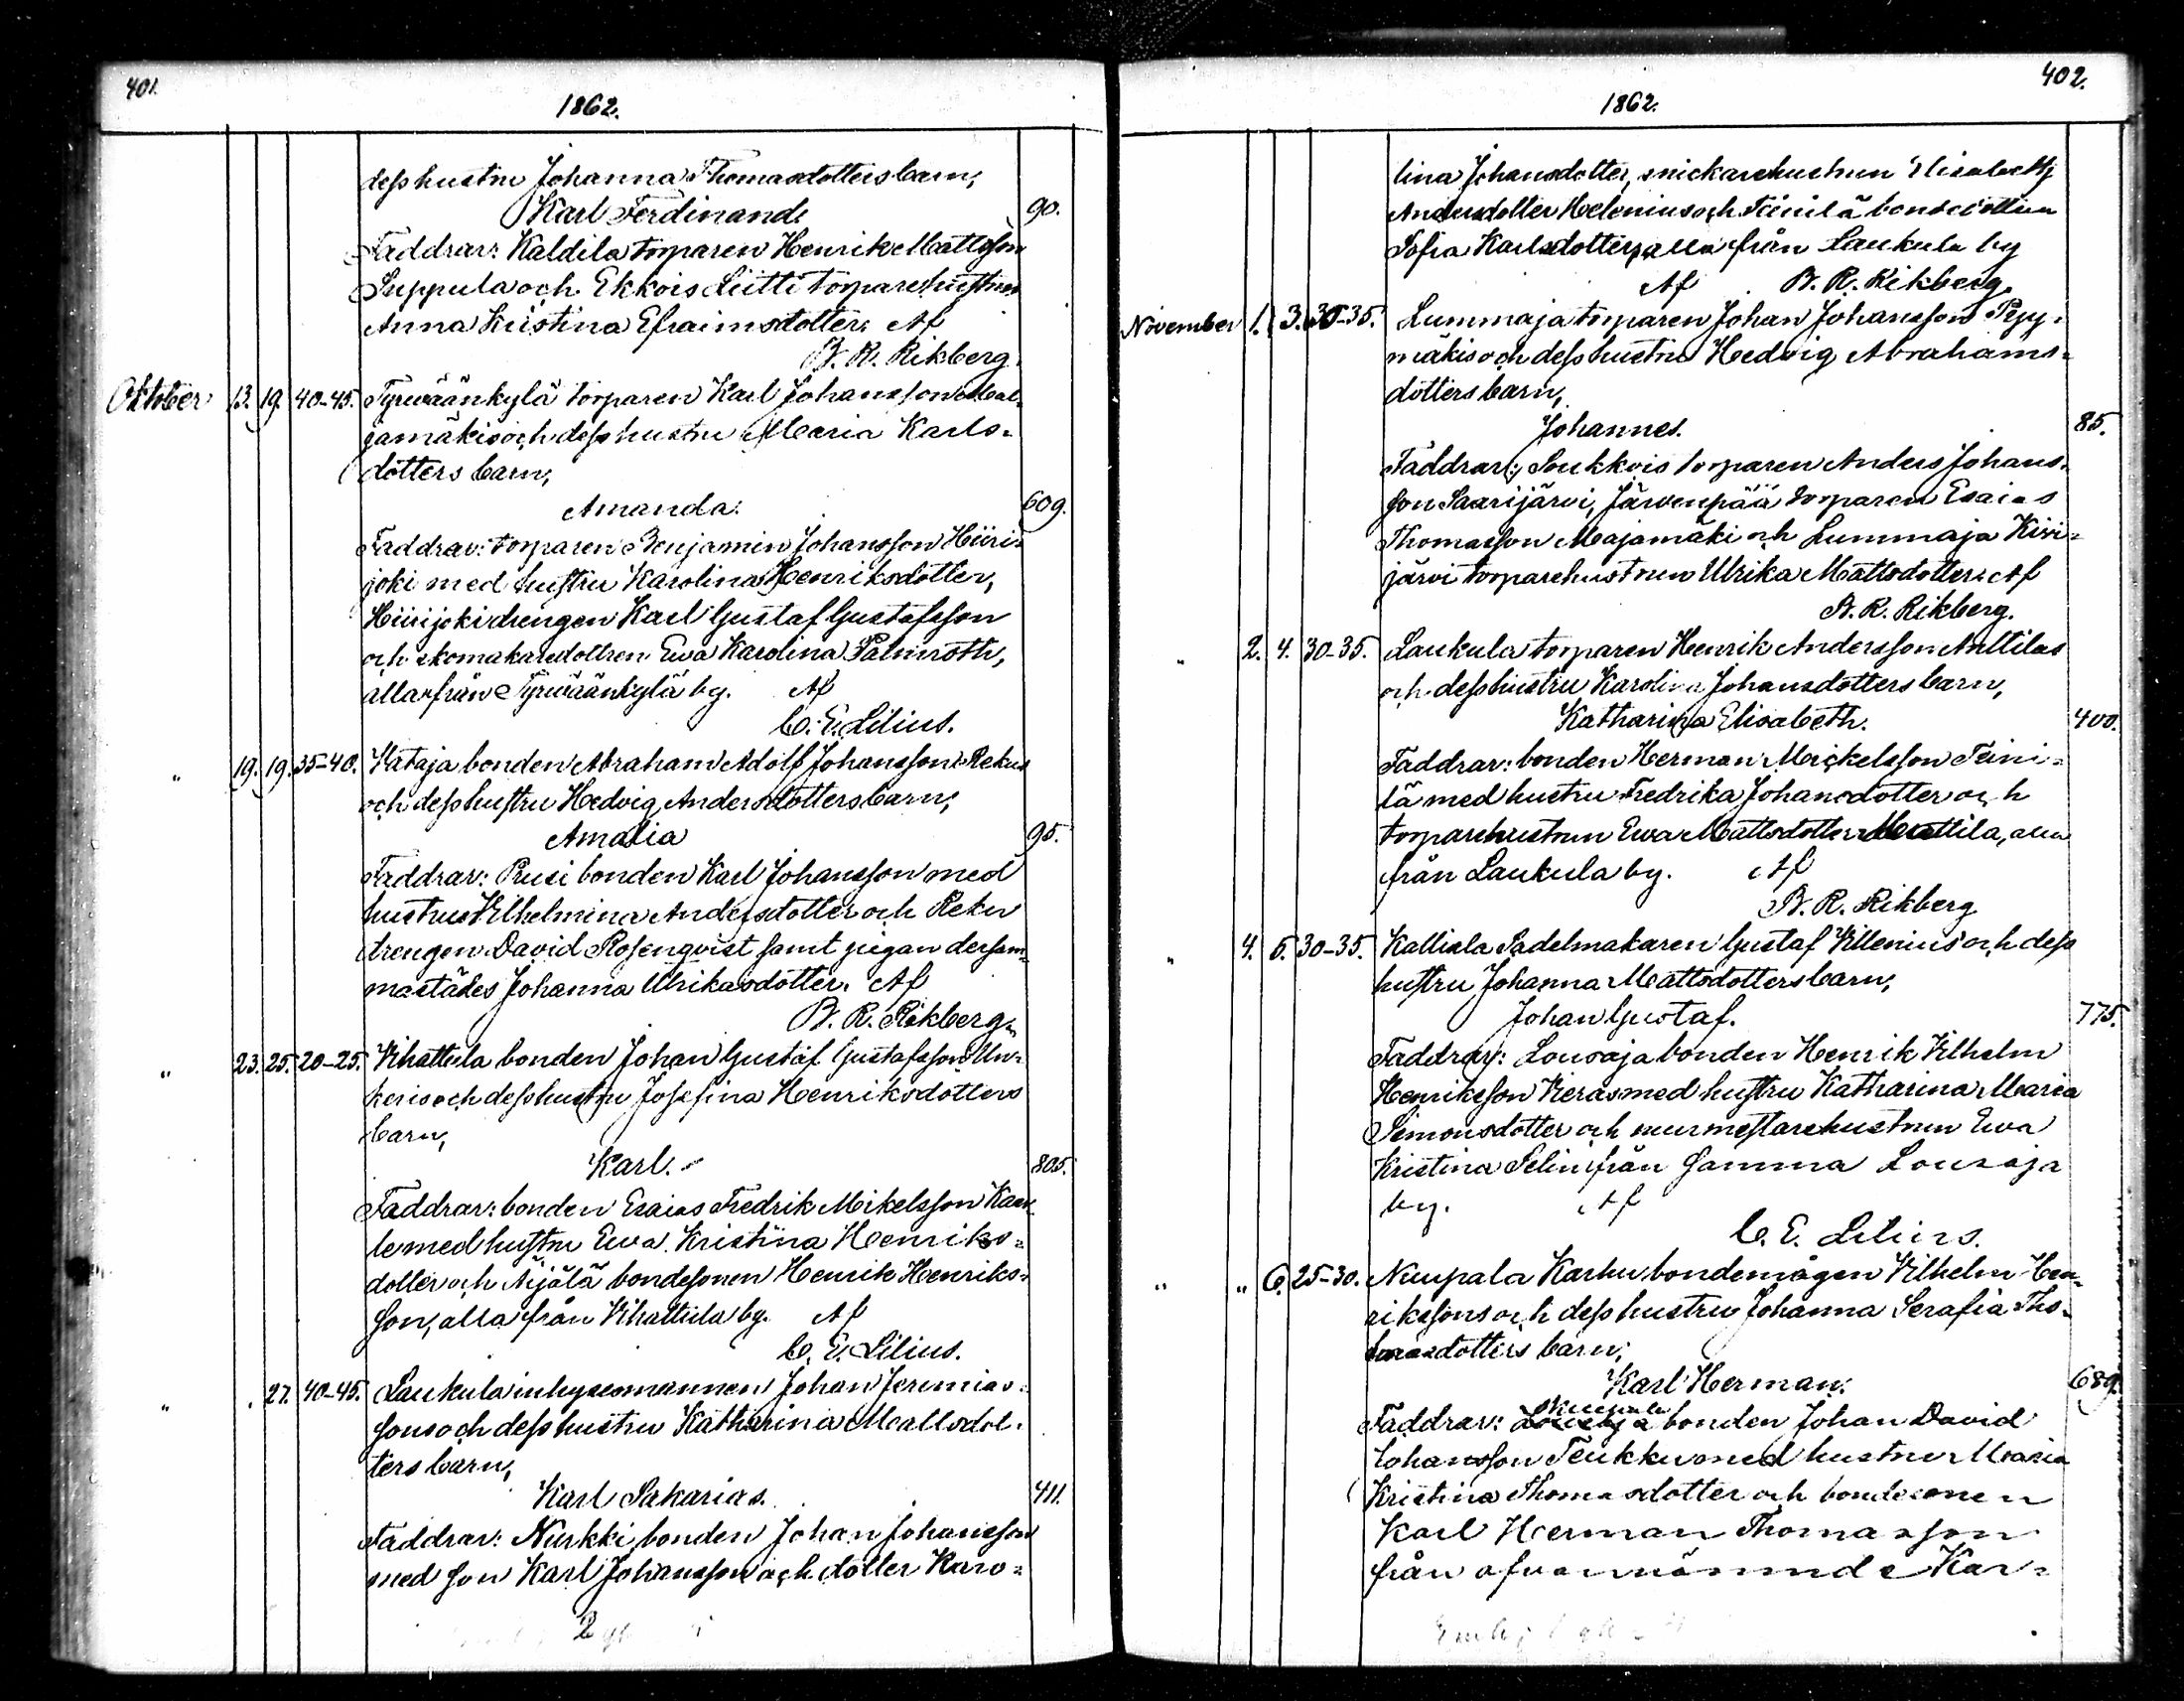 401.
1862.
dess hustru Johanna Thomasdotters barn,
Karl Ferdinand. 90.
Faddrar: Kaldila torparen Henrik Mattsson
Suppula och Ekkois Liitti torparehustrun
Anna Kristina Efraimsdotter. Af
B. R. Rikberg.
Oktober 13. 19. 40-45. Tyrväänkylä torparen Karl Johansson Mal-
jamäkis och dess hustru Maria Karls-
dotters barn,
Amanda. 609.
Faddrar: torparen Benjamin Johansson Hiiri-
joki med hustru Karolina Henriksdotter,
Hiirijoki drengen Karl Gustaf Gustafsson
och skomakaredottren Eva Karolina Palmroth,
alla från Tyrväänkylä by. Af
C. E. Lilius.
" 19. 19. 35-40. Kataja bonden Abraham Adolf Johansson Rekus
och dess hustru Hedvig Andersdotters barn,
Amalia 95.
Faddrar: Prusi bonden Karl Johansson med
hustru Vilhelmina Andersdotter och Reku
drengen David Rosenqvist samt pigan dersam-
mastädes Johanna Ulrikasdotter. Af
B. R. Rikberg.
" 23. 25. 20-25. Vihattula bonden Johan Gustaf Gustafsson Un-
keris och dess hustru Josefina Henriksdotters
barn,
Karl. 805.
Faddrar: bonden Esaias Fredrik Mikelsson
le med hustru Eva Kristina Henriks-
dotter och Äijälä bondesonen Henrik Henriks-
son, alla från Vihattula by. Af
C. E. Lilius.
" . 27. 40-45. Laukula inhysesmannen Johan Jeremias-
sons och dess hustru Katharina Mattsdot-
ters barn,
Karl Sakarias. 411.
Faddrar: Nurkki bonden Johan Johansson
med son Karl Johansson och dotter Karo-
402.
1862.
lina Johansdotter, snickarehustrun Elisabeth
Andersdotter Helenius och Teinilä bondedottren
Sofia Karlsdotter, alla från Laukula by
Af B. R. Rikberg.
November 1. 3. 30-35. Lummaja torparen Johan Johansson
mäkis och dess hustru Hedvig Abrahams-
dotters barn,
Johannes. 85.
Faddrar: Soukkois torparen Anders Johans-
son Saarijärvi, Järvenpää torparen Esaias
Thomasson Majamäki och Lummaja Kivi-
järvi torparehustrun Ulrika Mattsdotter. Af
B. R. Rikberg.
" 2. 4. 30-35. Laukula torparen Henrik Andersson Anttilas
och dess hustru Karolina Johansdotters barn,
Katharina Elisabeth. 400.
Faddrar: bonden Herman Mickelsson Teini-
lä med hustru Fredrika Johansdotter och
torparehustrun Eva Mattsdotter Mattila, alla
från Laukula by. Af
B. R. Rikberg
" 4. 5. 30-35. Kalliala Sadelmakaren Gustaf Villenius och dess
hustru Johanna Mattsdotters barn,
Johan Gustaf. 775.
Faddrar: Lousaja bonden Henrik Vilhelm
Henriksson Vieras med hustru Katharina Maria
Simonsdotter och murmestarehustrun Eva
Kristina Selin från samma Lousaja
by. Af
C. E. Lilius.
" " 6. 25-30. Nuupala Karhu bondemågen Vilhelm Hen-
rikssons och dess hustru Johanna Serafia Tho-
masdotters barn,
Karl Herman. 689.
Nuupala
Faddrar: Lousaja bonden Johan David
Johansson Teukku med hustru Maria
Kristina Thomasdotter och bondesonen
Karl Herman Thomasson
från ofvannämnde Kar-